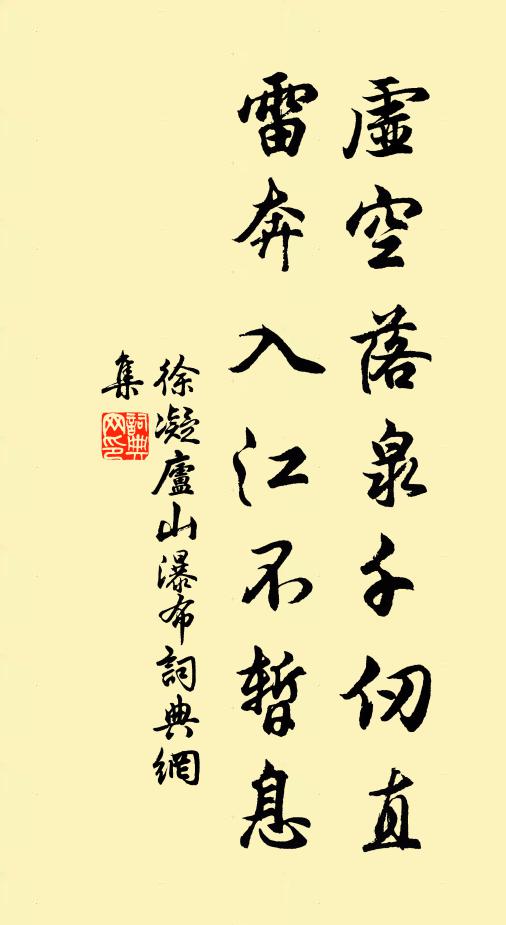 虛空落泉千仞直
雷奔入江不暫息
徐凝廬山瀑布詞典網
集
詞典
网印